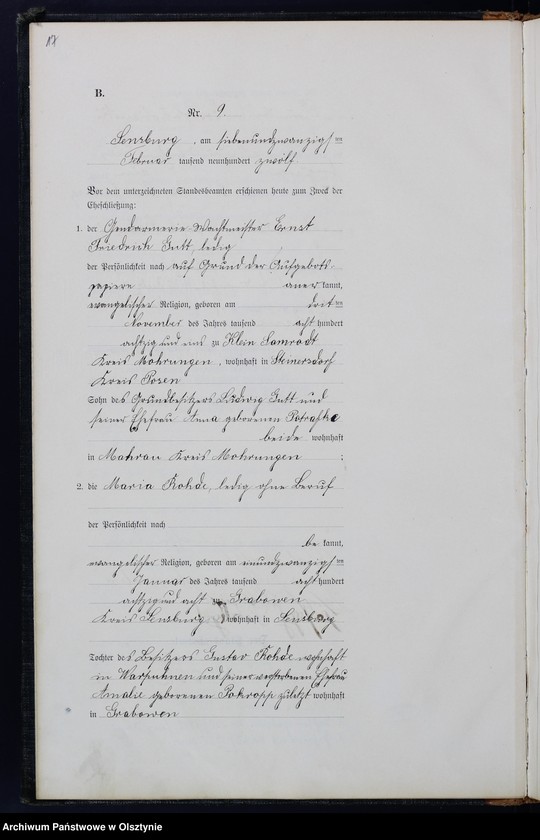 17
B.
Nr. 9.
Sensburg, am siebenundzwanzigsten
Februar tausend neunhundert zwölf
Vor dem unterzeichneten Standesbeamten erschienen heute zum Zweck der
Eheschließung:
1. der Gendarmerie-Wachtmeister Ernst
Friedrich Gutt, ledig
der Persönlichkeit nach auf Grund der Aufgebots-
papiere anerkannt,
evangelischer Religion, geboren am dritten
November des Jahres tausend achthundert
achtzig und eins zu Klein Samrodt
Kreis Mohrungen, wohnhaft in Steinersdorf
Kreis Posen
Sohn des Grundbesitzers Ludwig Gutt und
seiner Ehefrau Anna geborenen
beide wohnhaft
in Mahrau Kreis Mohrungen ;
2. die Maria Rohde, ledig ohne Beruf
der Persönlichkeit nach
bekannt,
evangelischer Religion, geboren am einundzwanzigsten
Januar des Jahres tausend achthundert
achtzig und acht zu Grabowen
Kreis Sensburg, wohnhaft in Sensburg
Tochter des Besitzers Gustav Rohde wohnhaft
in Warpuhnen und seiner verstorbenen Ehefrau
Amalie geborenen Pokropp zuletzt wohnhaft
in Grabowen
Archiwum Państwowe w Olsztynie